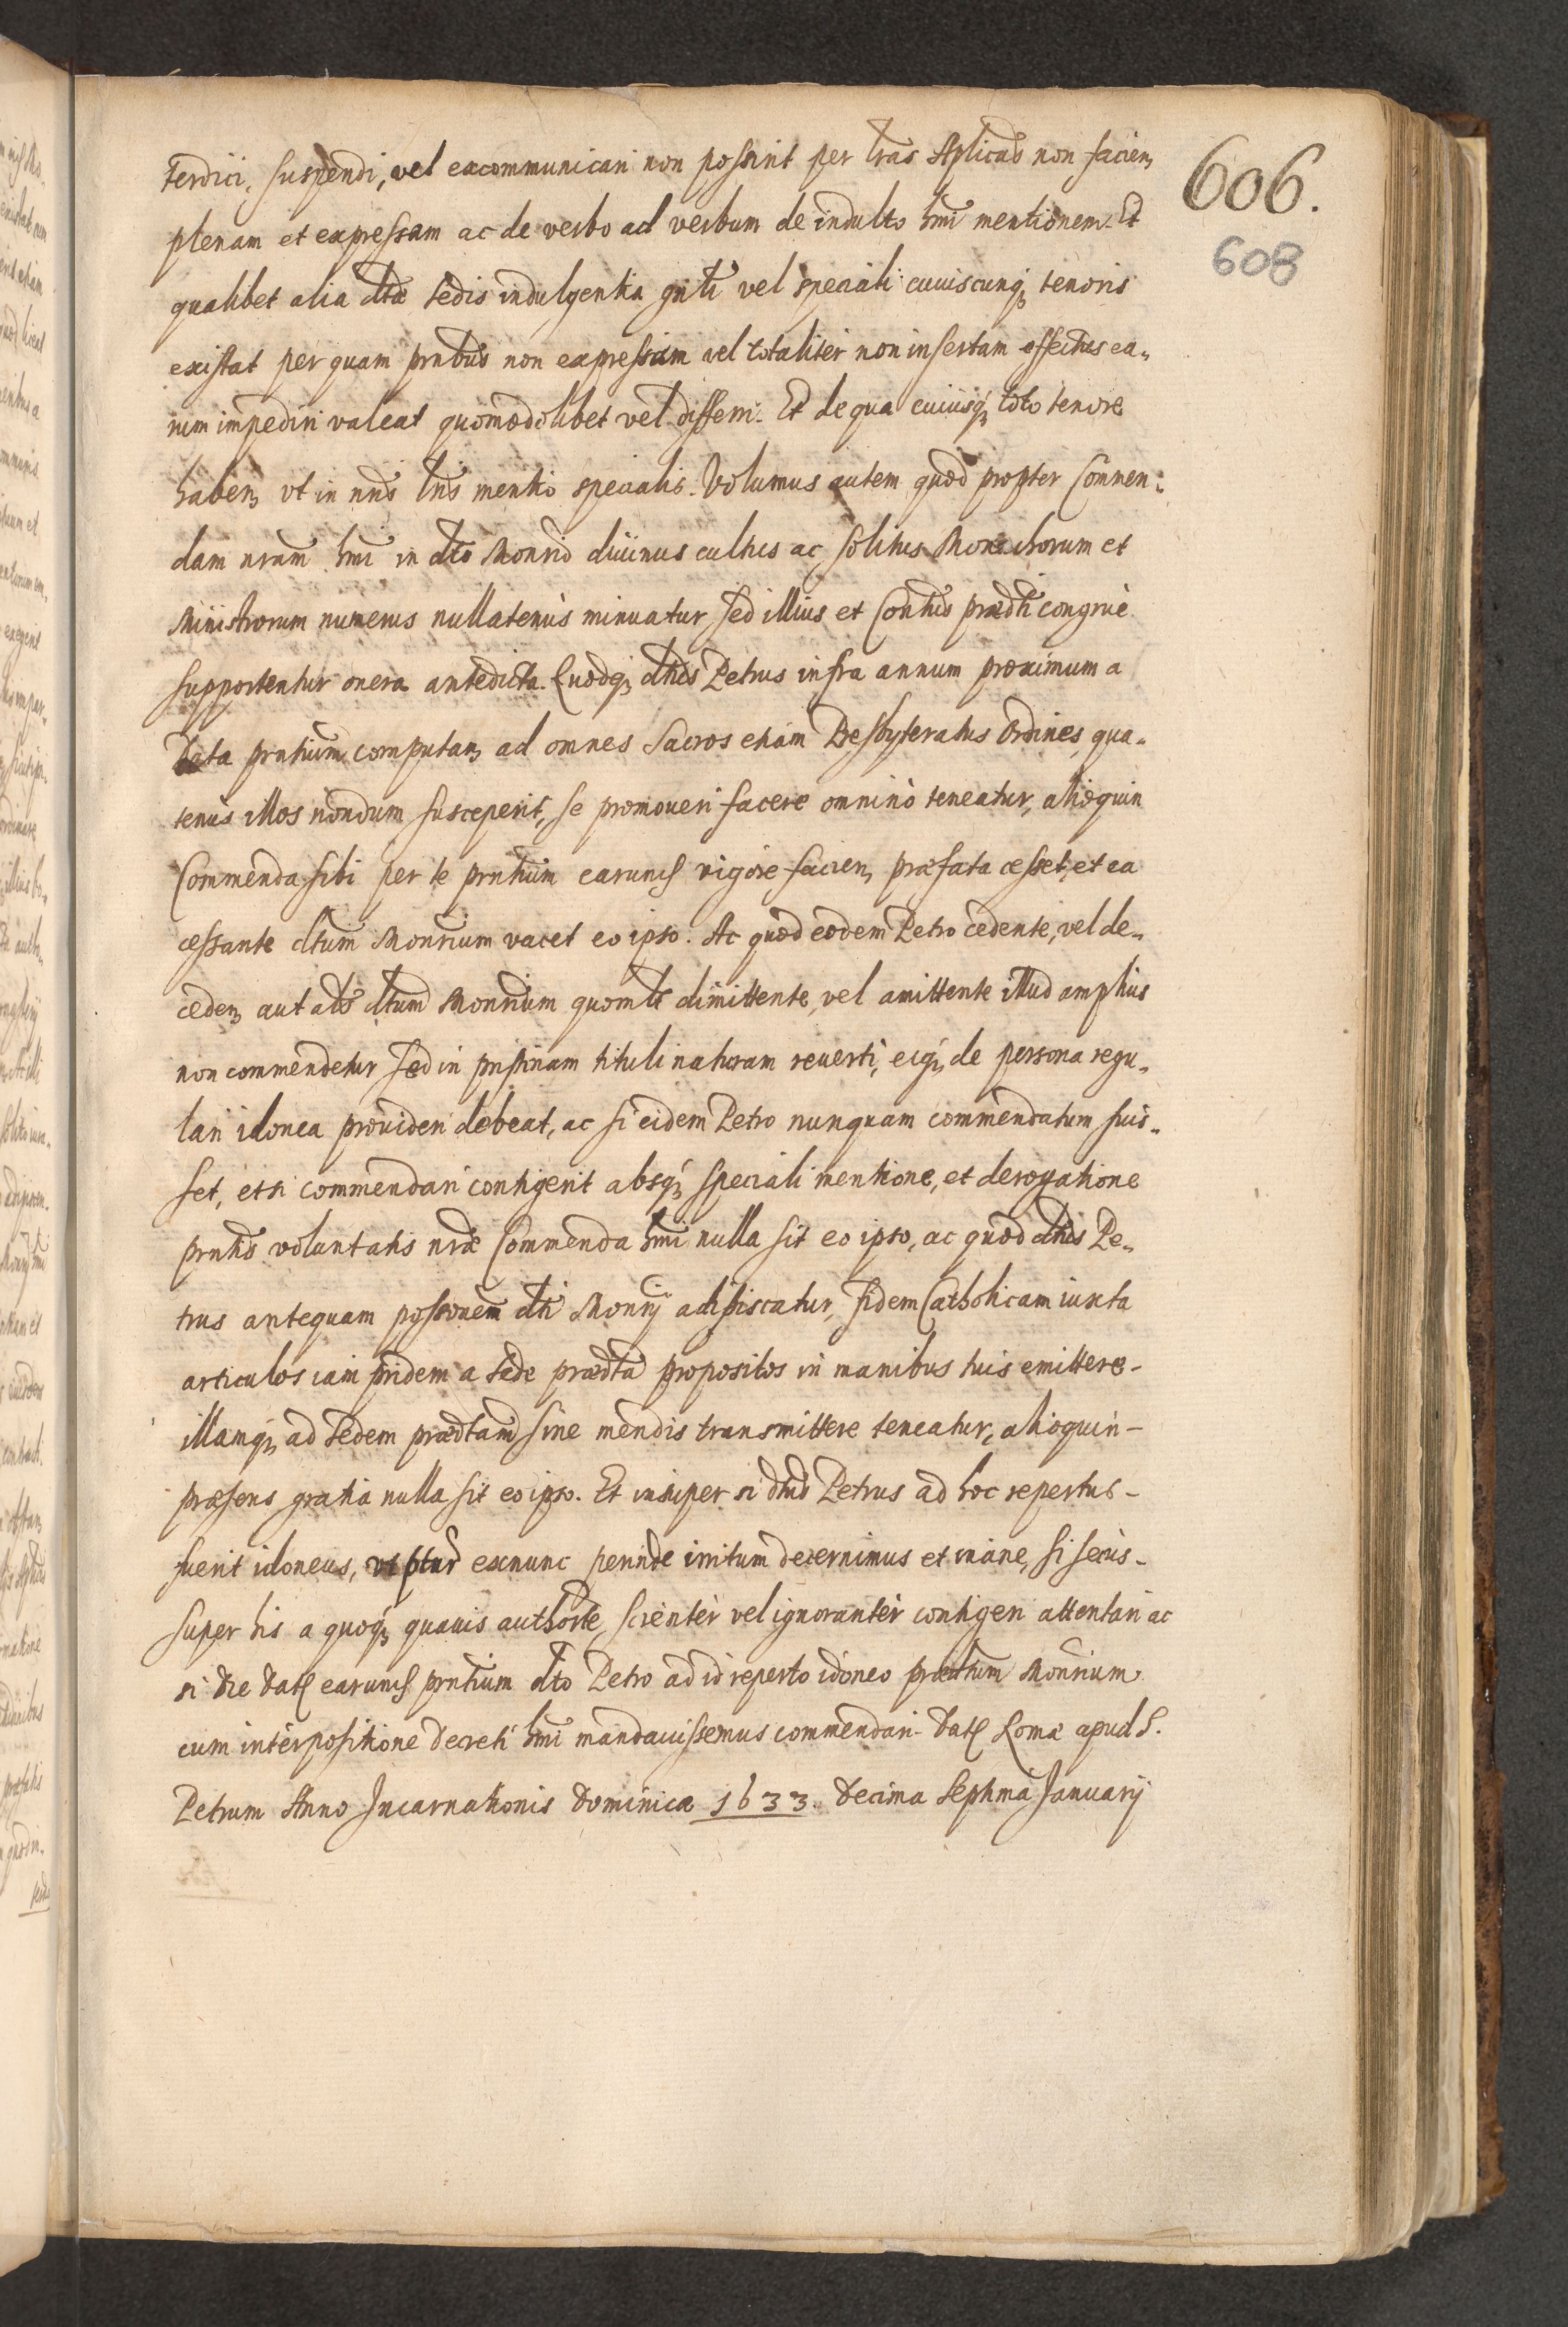 606.
608
terdici, suspendi, vel excommunicari non possint per lras Aplicas non facien,
plenam et expressam ac de verbo ad verbum de indulto hmoi mentionem. Et
qualibet alia dtae sedis indulgentia gnli vel speciali cuiuscunq; tenoris
existat per quam pntibus non expressam vel totaliter non insertam effectus ea-
rum impediri valeat quomodolibet vel differri. Et de qua cuiusq; toto tenore
haben, vt in nris lris mentio specialis. Volumus autem quod propter Commen-
dam nram hmoi in dto Monrio diuinus cultus ac solitus Monachorum et
Ministrorum numerus nullatenus minuatur sed illius et Contus praedti congrue
supportentur onera antedicta. Quodq; dtus Petrus infra annum proximum a
data pntium computan, ad omnes Sacros etiam Presbyteratus Ordines, qua-
tenus illos nondum susceperit, se promoueri facere omninò teneatur, alioquin
Commenda sibi per te pntium earumd vigore facien, praefata cesset, et ea
cessante dtum Monrium vacet eo ipso. Ac quod eodem Petro cedente, vel de-
ceden, aut als dtum Monrium quomlt dimittente, vel amittente illud amplius
non commendetur sed in pristinam tituli naturam reuerti, eiq; de persona regu-
lari idonea prouideri debeat, ac si eidem Petro nunquam commendatum fuis-
set, et si commendari contigerit absq; speciali mentione, et derogatione
pntis voluntatis nrae Commenda hmoi nulla sit eo ipso, ac quod dtus Pe-
trus antequam possonem dti Monrij adipiscatur, fidem Catholicam iuxta
articulos iam pridem a sede praedta propositos in manibus tuis emittere-
illamq; ad Sedem praedtam sine mendis transmittere teneatur, alioquin-
praesens gratia nulla sit eo ipso. Et insuper si dtus Petrus ad hoc repertus-
fuerit idoneus, vt pfur exnunc perinde irritum decernimus et inane, si secus-
super his a quoq; quauis authorte, scienter vel ignoranter contigeri attentari ac
si die dat earumd pntium dto Petro ad id reperto idoneo praedtum Monrium
cum interpositione decreti hmoi mandauissemus commendari. Dat Romae apud S.
Petrum Anno Incarnationis Dominicae 1633. decima septima Januarij